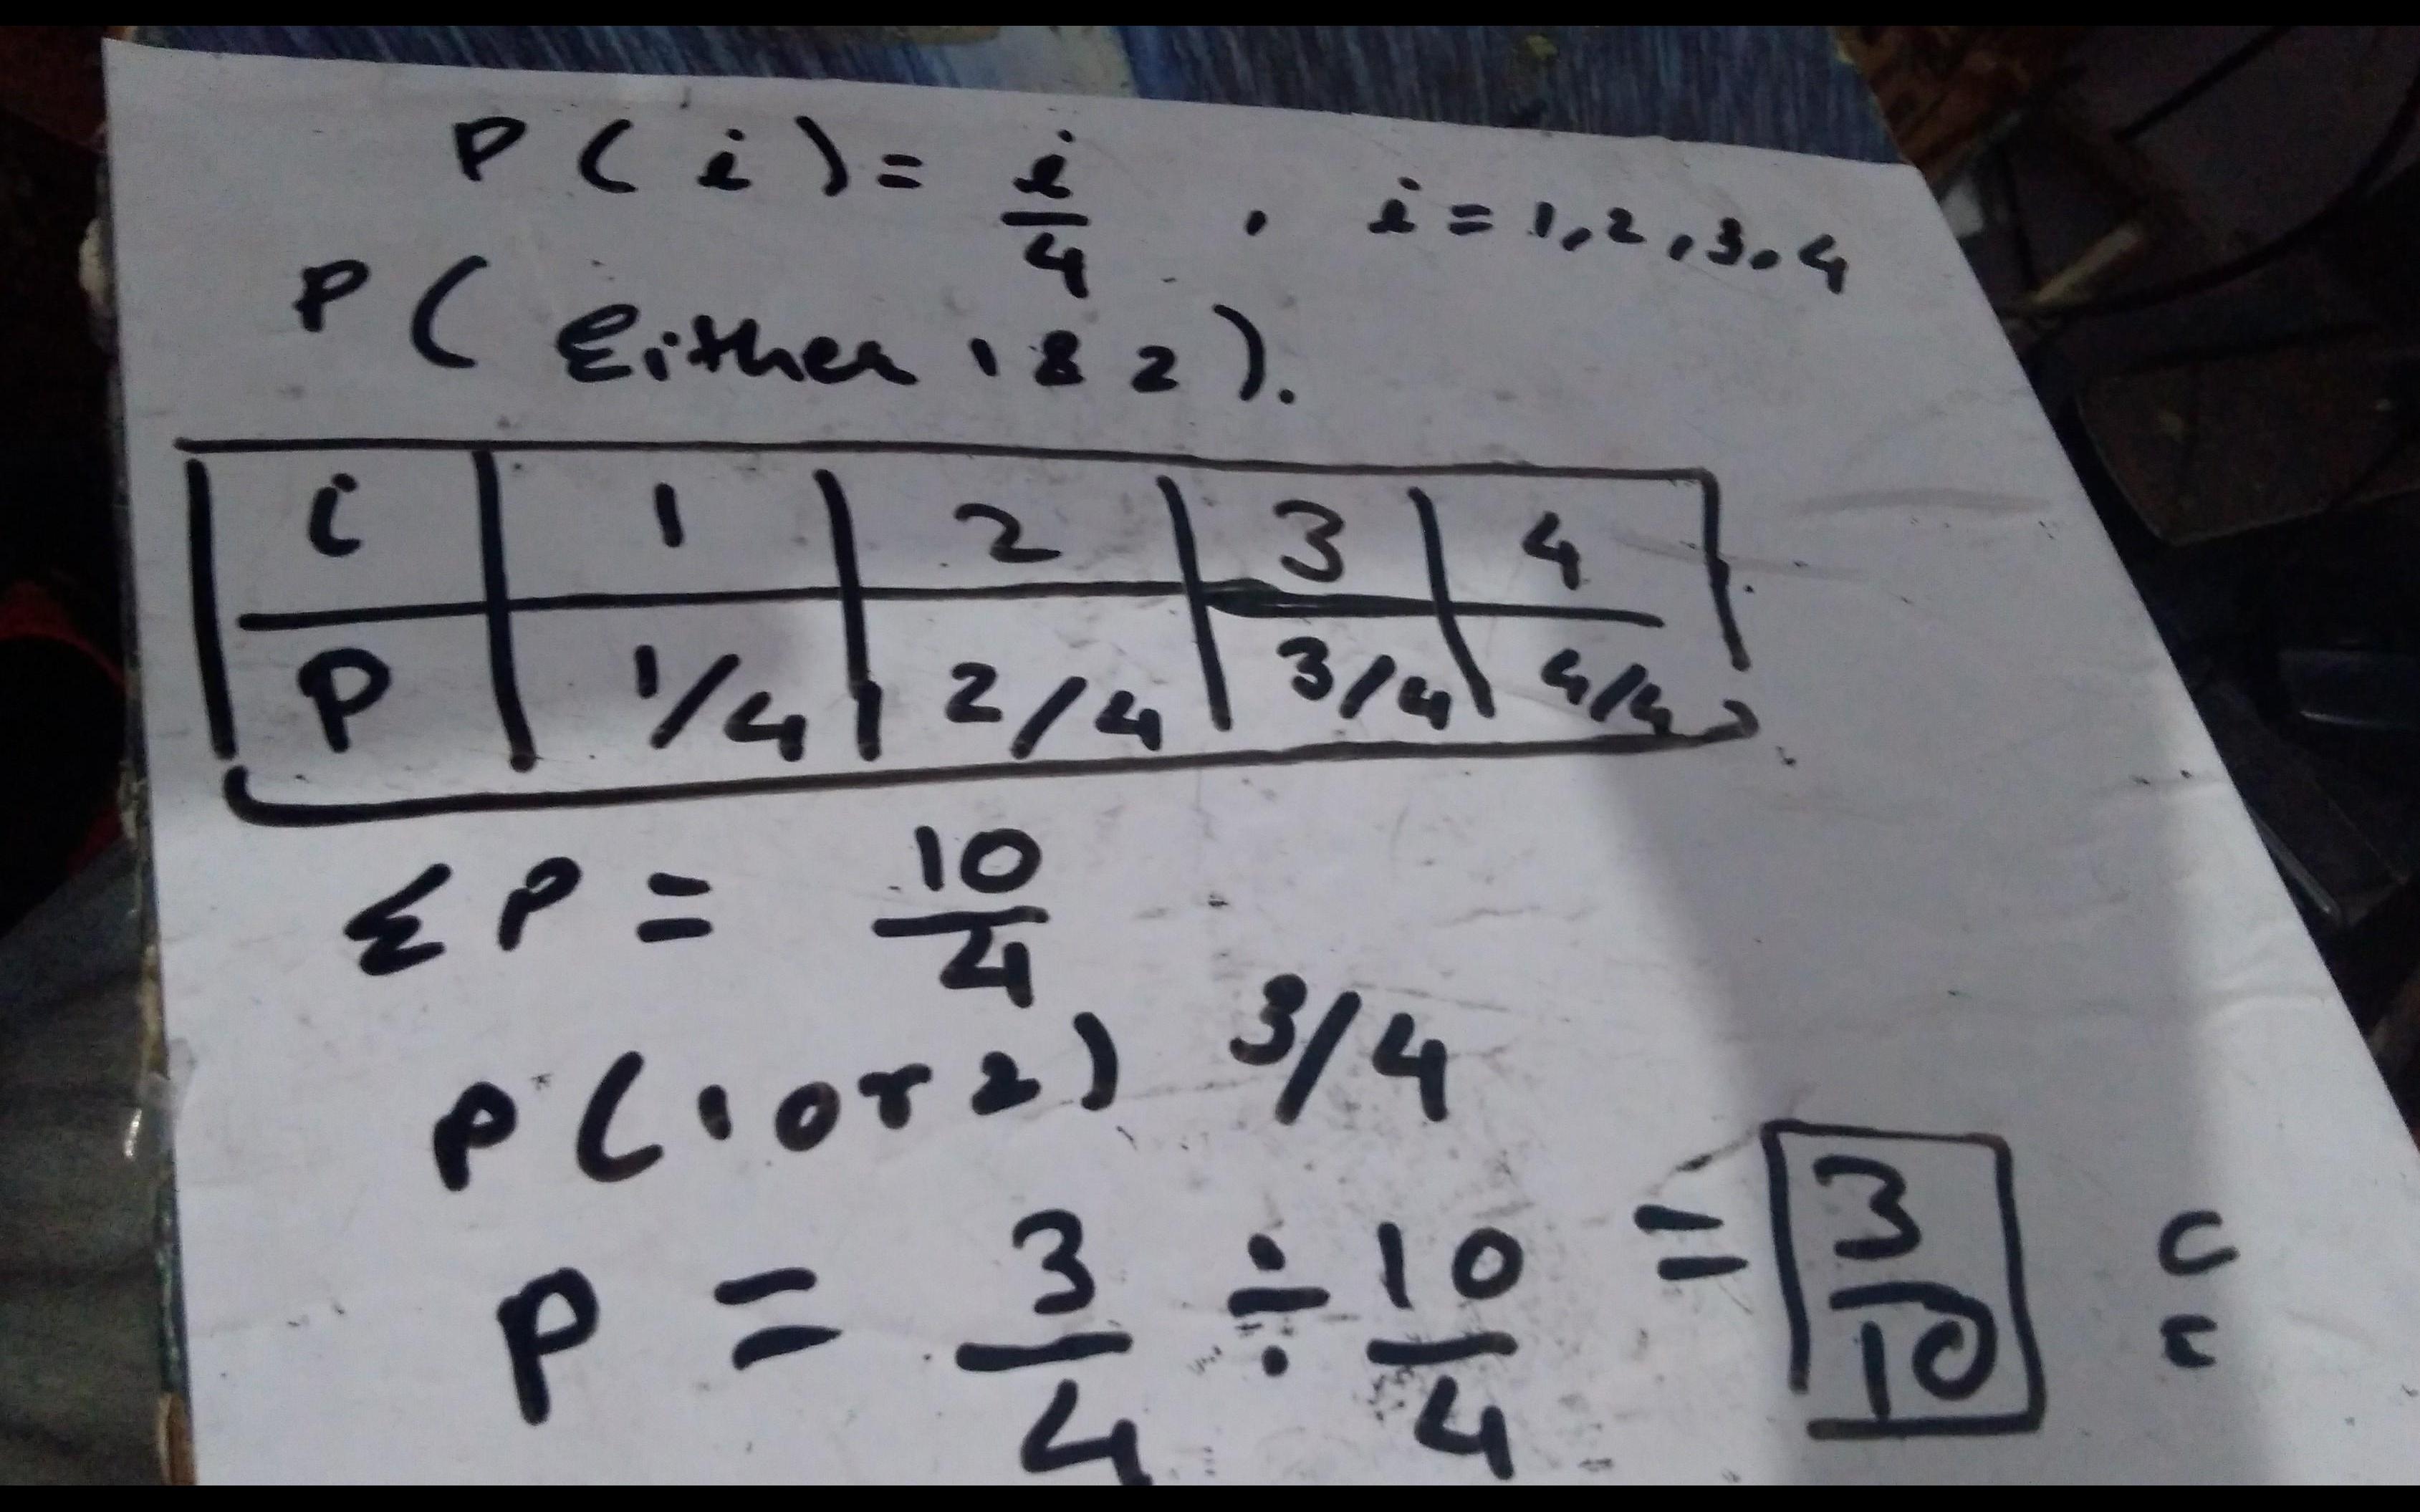 P(i) = i/4 , i = 1,2,3,4
P(Either 1 & 2).
i 1 2 3 4
P 1/4 2/4 3/4 4/4
ΣP = 10/4
P(1 or 2) 3/4
P = 3/4 ÷ 10/4 = 3/10